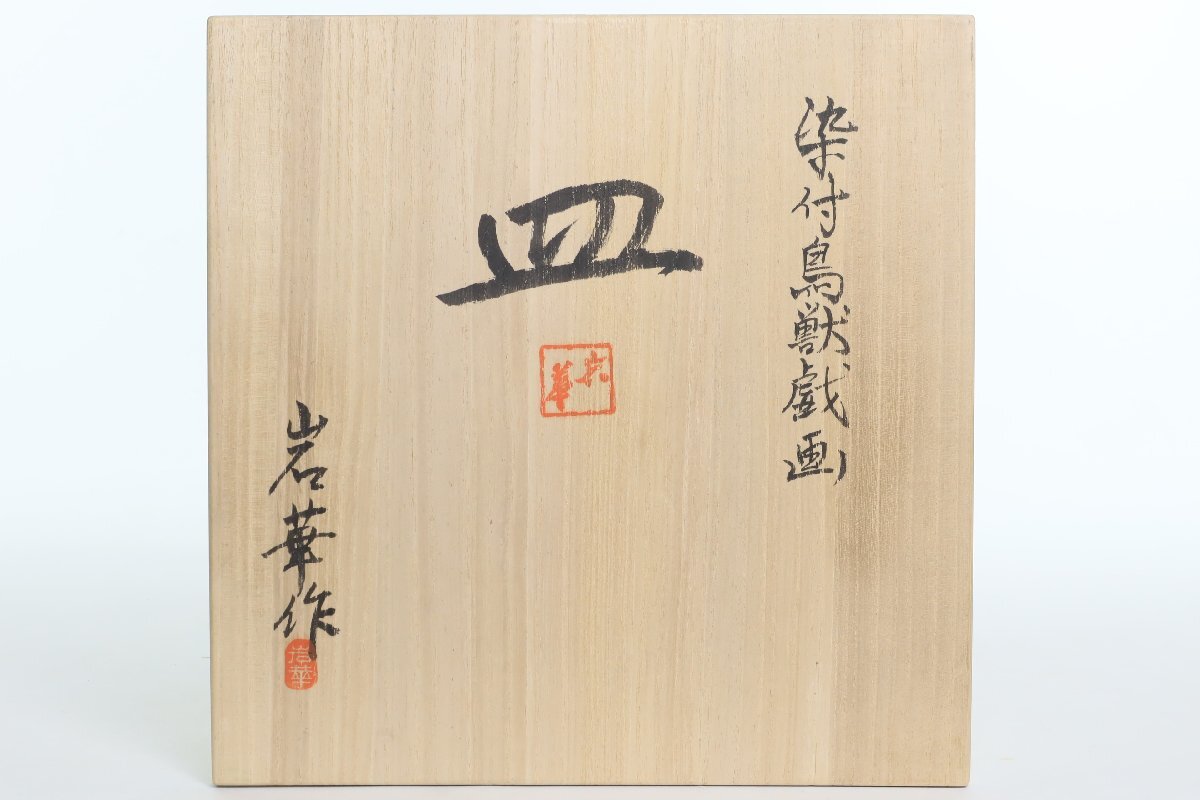 染付鳥獣戯画
皿
岩華作
岩華